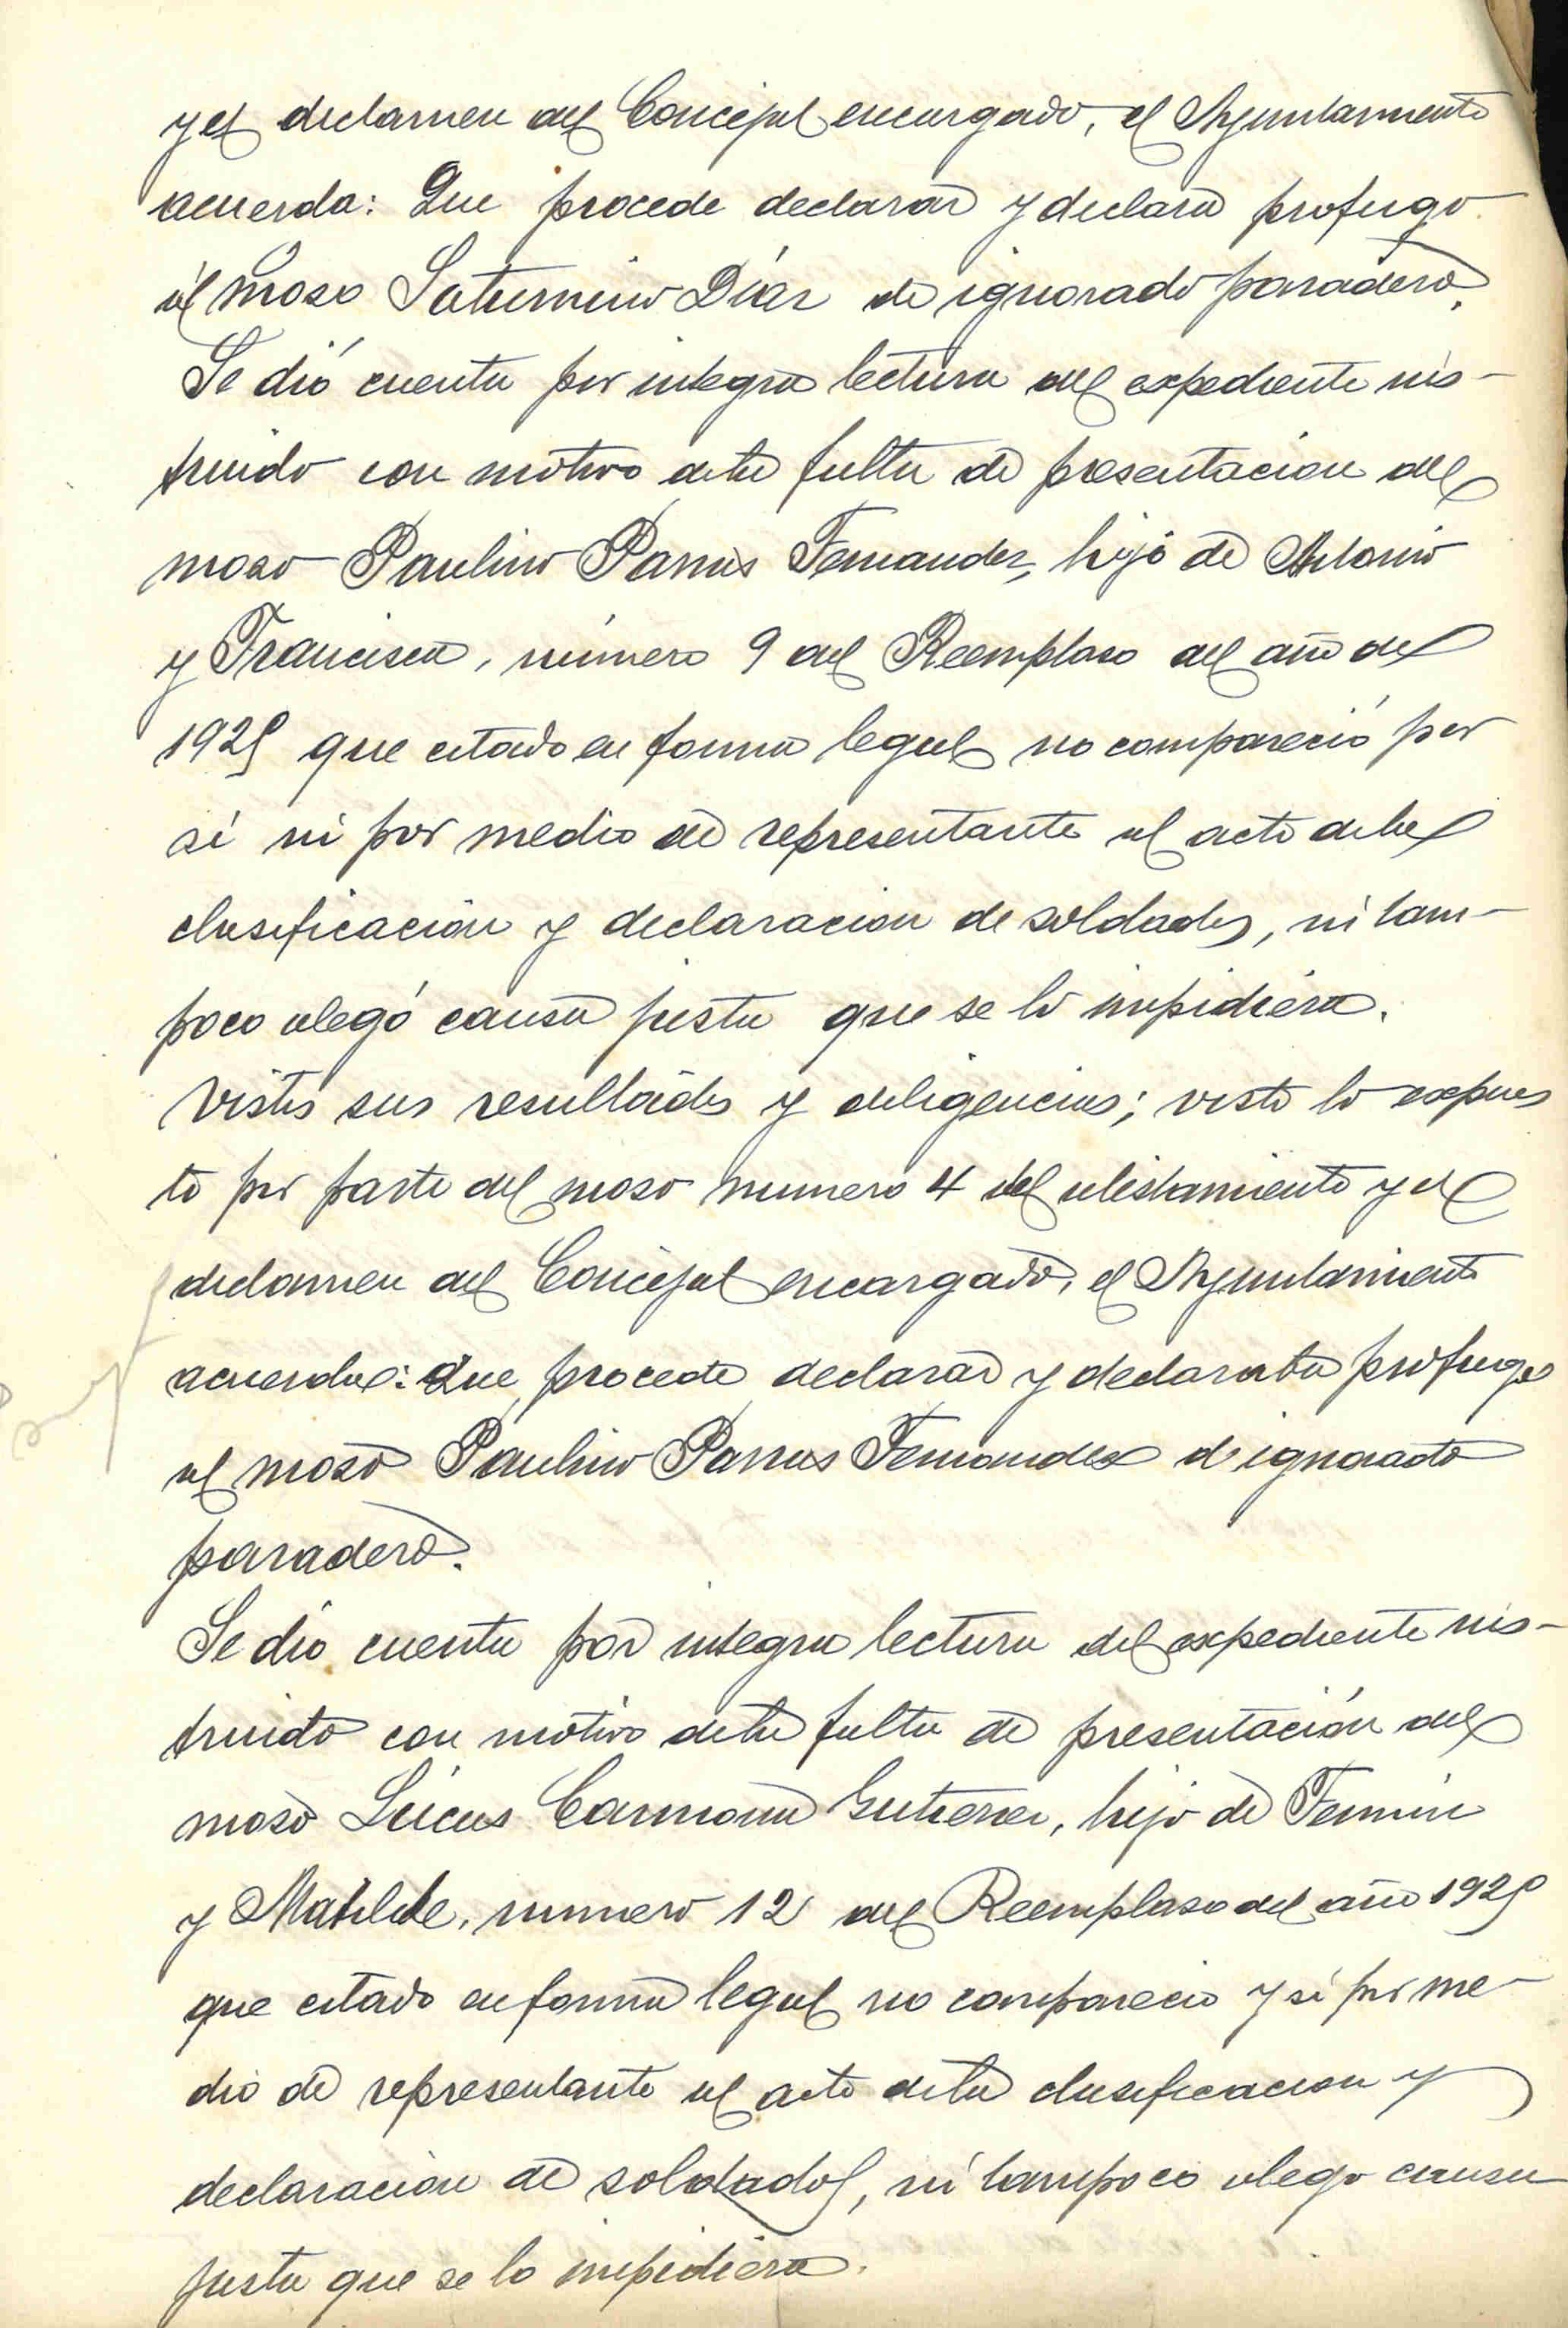 y el dictamen del Concejal encargado, el Ayuntamiento
acuerda: Que procede declarar y declara profugo
al moso Saturnino Díaz de ignorado paradero.
Se dió cuenta por integra lectura del expediente ins-
truido con motivo de la falta de presentación del
moso Paulino Parras Fernandez, hijo de Antonio
y Francisca, número 9 del Reemplaso del año de
1925 que citado en forma legal no compareció por
sí ni por medio de representante al acto de la
clasificación y declaracion de soldados, ni tam-
poco alegó causa justa que se lo impidiera.
Vistos sus resultados y diligencias; visto lo expues
to por parte del moso numero 4 del alistamiento y el
dictamen del Concejal encargado, el Ayuntamiento
acuerda: Que procede declarar y declaraba profugo
al moso Paulino Parras Fernandez de ignorado
paradero.
Se dio cuenta por integra lectura del expediente ins-
truido con motivo de la falta de presentación del
moso Lúcas Carmona Gutierrez, hijo de Fermin
y Matilde, numero 12 del Reemplaso del año 1925
que citado en forma legal no comparecio y sí por me-
dio de representante al acto de la clasificacion y
declaracion de soldados, ni tampoco alego causa
justa que se lo impidiera.